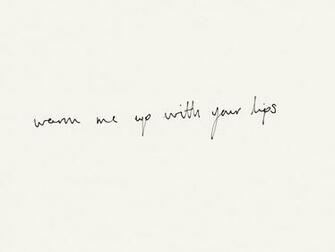 warm me up with your lips